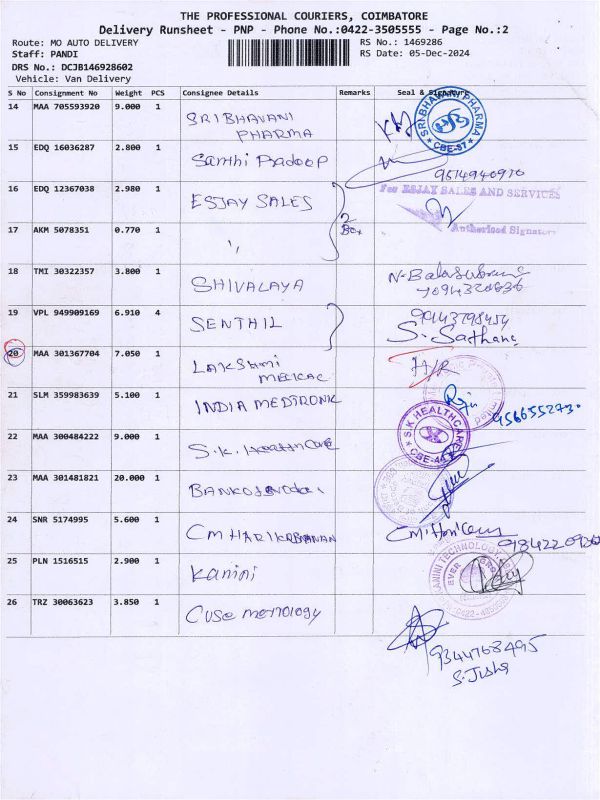 THE PROFESSIONAL COURIERS, COIMBATORE
Delivery Runsheet - PNP - Phone No.:0422-3505555 - Page No.:2
Route: MO AUTO DELIVERY
RS No.: 1469286
Staff: PANDI
RS Date: 05-Dec-2024
DRS No.: DCJB146928602
Vehicle: Van Delivery
S No Consignment No Weight PCS Consignee Details Remarks Seal & Signature
14 MAA 705593920 9.000 1 SRIBHAVANI
PHARMA
SRI BHAVANI PHARMA
CBE-37
15 EDQ 16036287 2.800 1 Santhi Pradeep
9514940970
16 EDQ 12367038 2.980 1 ESJAY SALES
For ESJAY SALES AND SERVICES
2
Box
17 AKM 5078351 0.770 1 "
Authorised Signatory
18 TMI 30322357 3.800 1 SHIVALAYA
19 VPL 949909169 6.910 4 SENTHIL
S. Sathana
20 MAA 301367704 7.050 1 LAKSHMI
MEDICAL
H/R
21 SLM 359983639 5.100 1 INDIA MEDTRONIC
22 MAA 300484222 9.000 1 S.K. HealthCare
S.K HEALTHCARE
CBE-44
23 MAA 301481821 20.000 1
24 SNR 5174995 5.600 1
25 PLN 1516515 2.900 1 Kanini
KANINI TECHNOLOGY
26 TRZ 30063623 3.850 1 CUSE METROLOGY
9344768495